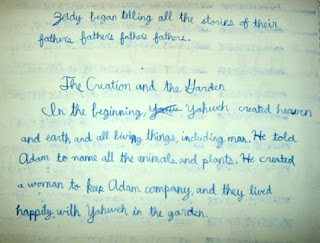 Zeidy began telling all the stories of their
fathers fathers fathers fathers.
The Creation and the Garden
In the beginning, Yahweh created heaven
and earth and all living things, including man. He told
Adam to name all the animals and plants. He created
a woman to keep Adam company, and they lived
happily with Yahweh in the garden.